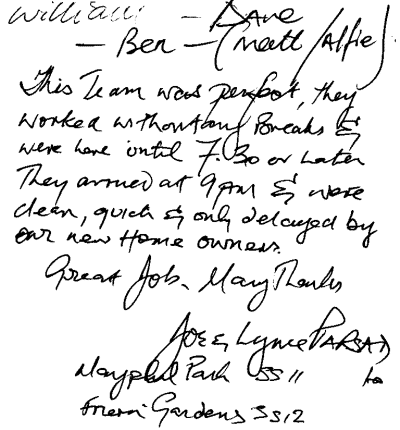 William - Dave
- Ben - (Matt / Alfie)
This Team was perfect, they
worked without any Breaks &
were here until 7.30 or Later
They arrived at 9AM & were
clean, quick & only delayed by
our new Home owners.
Great Job. Many Thanks
Joe & Lynne
Park SS11 to
Gardens SS12